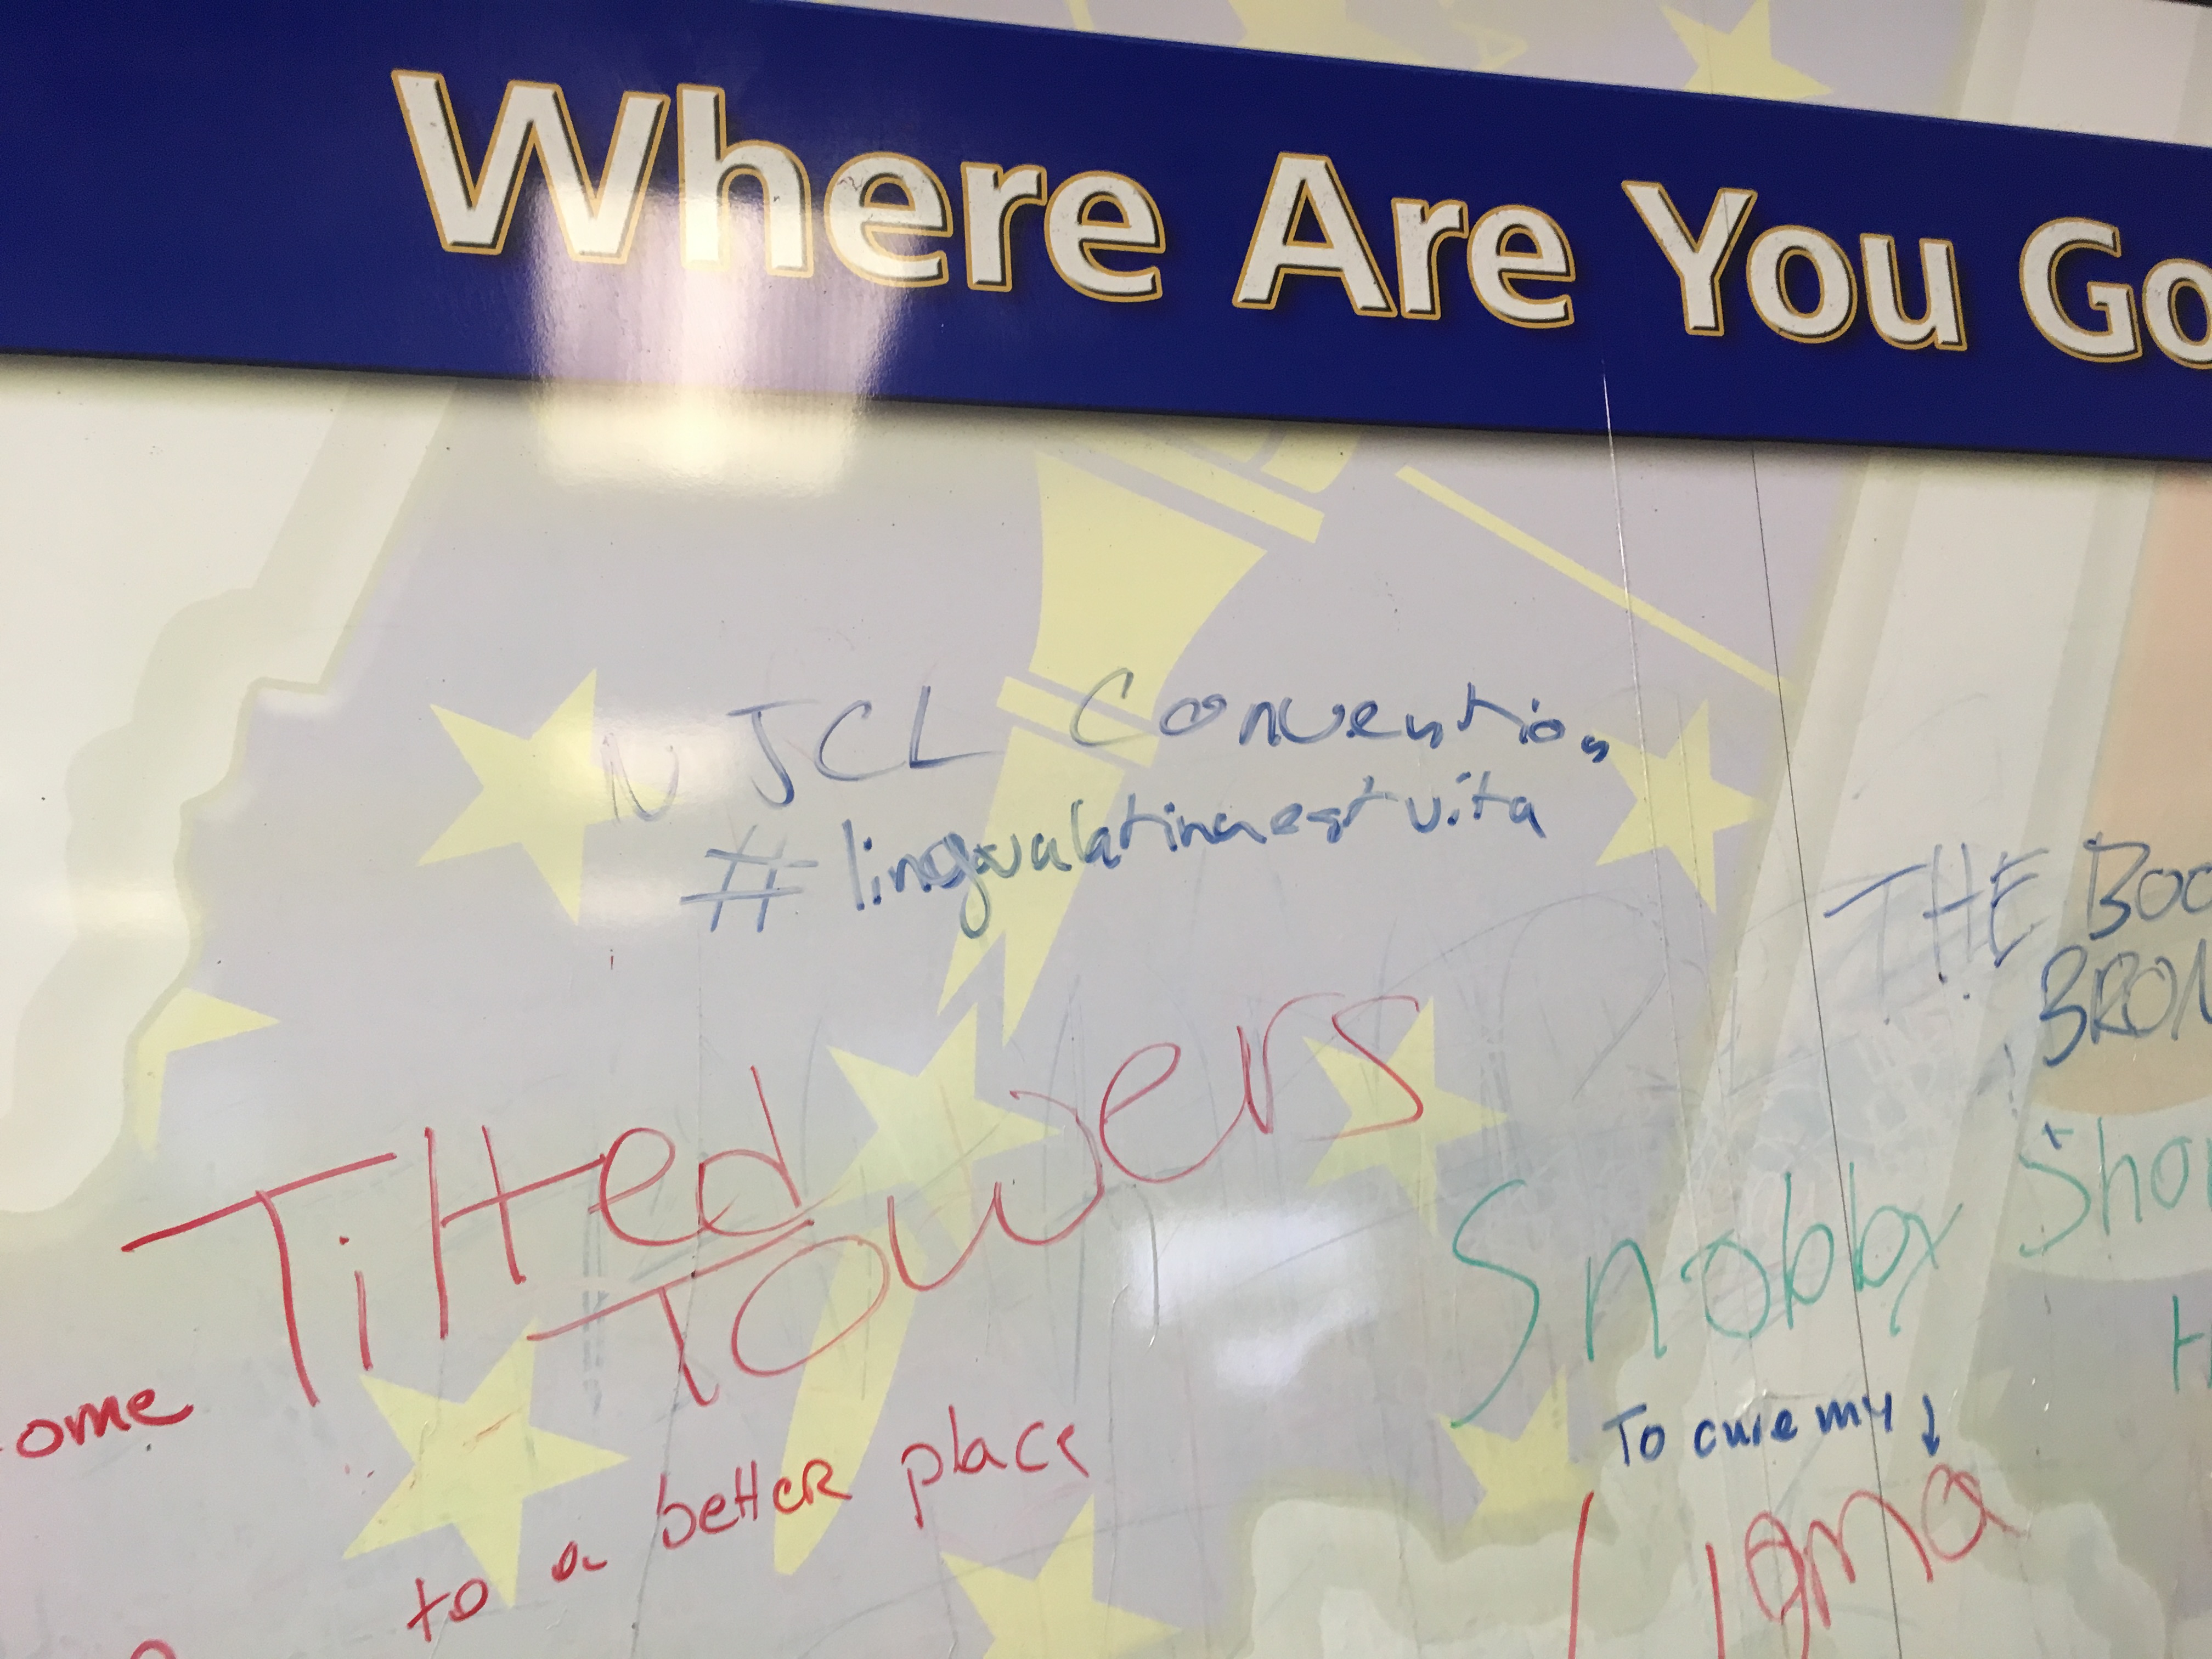 Where Are You Go
NJCL Convention
#lingualatinaestvita
THE BOO
BRON
Tilted
Towers
Snobby Sho
H
ome
to a better place
To cure my ↓
Ligma